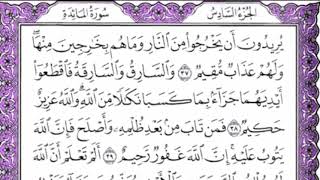 الجزء السادس سورة المائدة
يُرِيدُونَ أَن يَخْرُجُوا۟ مِنَ ٱلنَّارِ وَمَا هُم بِخَٰرِجِينَ مِنْهَا
وَلَهُمْ عَذَابٌ مُّقِيمٌ ٣٧ وَٱلسَّارِقُ وَٱلسَّارِقَةُ فَٱقْطَعُوٓا۟
أَيْدِيَهُمَا جَزَآءًۢ بِمَا كَسَبَا نَكَٰلًا مِّنَ ٱللَّهِ وَٱللَّهُ عَزِيزٌ
حَكِيمٌ ٣٨ فَمَن تَابَ مِنۢ بَعْدِ ظُلْمِهِۦ وَأَصْلَحَ فَإِنَّ ٱللَّهَ
يَتُوبُ عَلَيْهِ إِنَّ ٱللَّهَ غَفُورٌ رَّحِيمٌ ٣٩ أَلَمْ تَعْلَمْ أَنَّ ٱللَّهَ